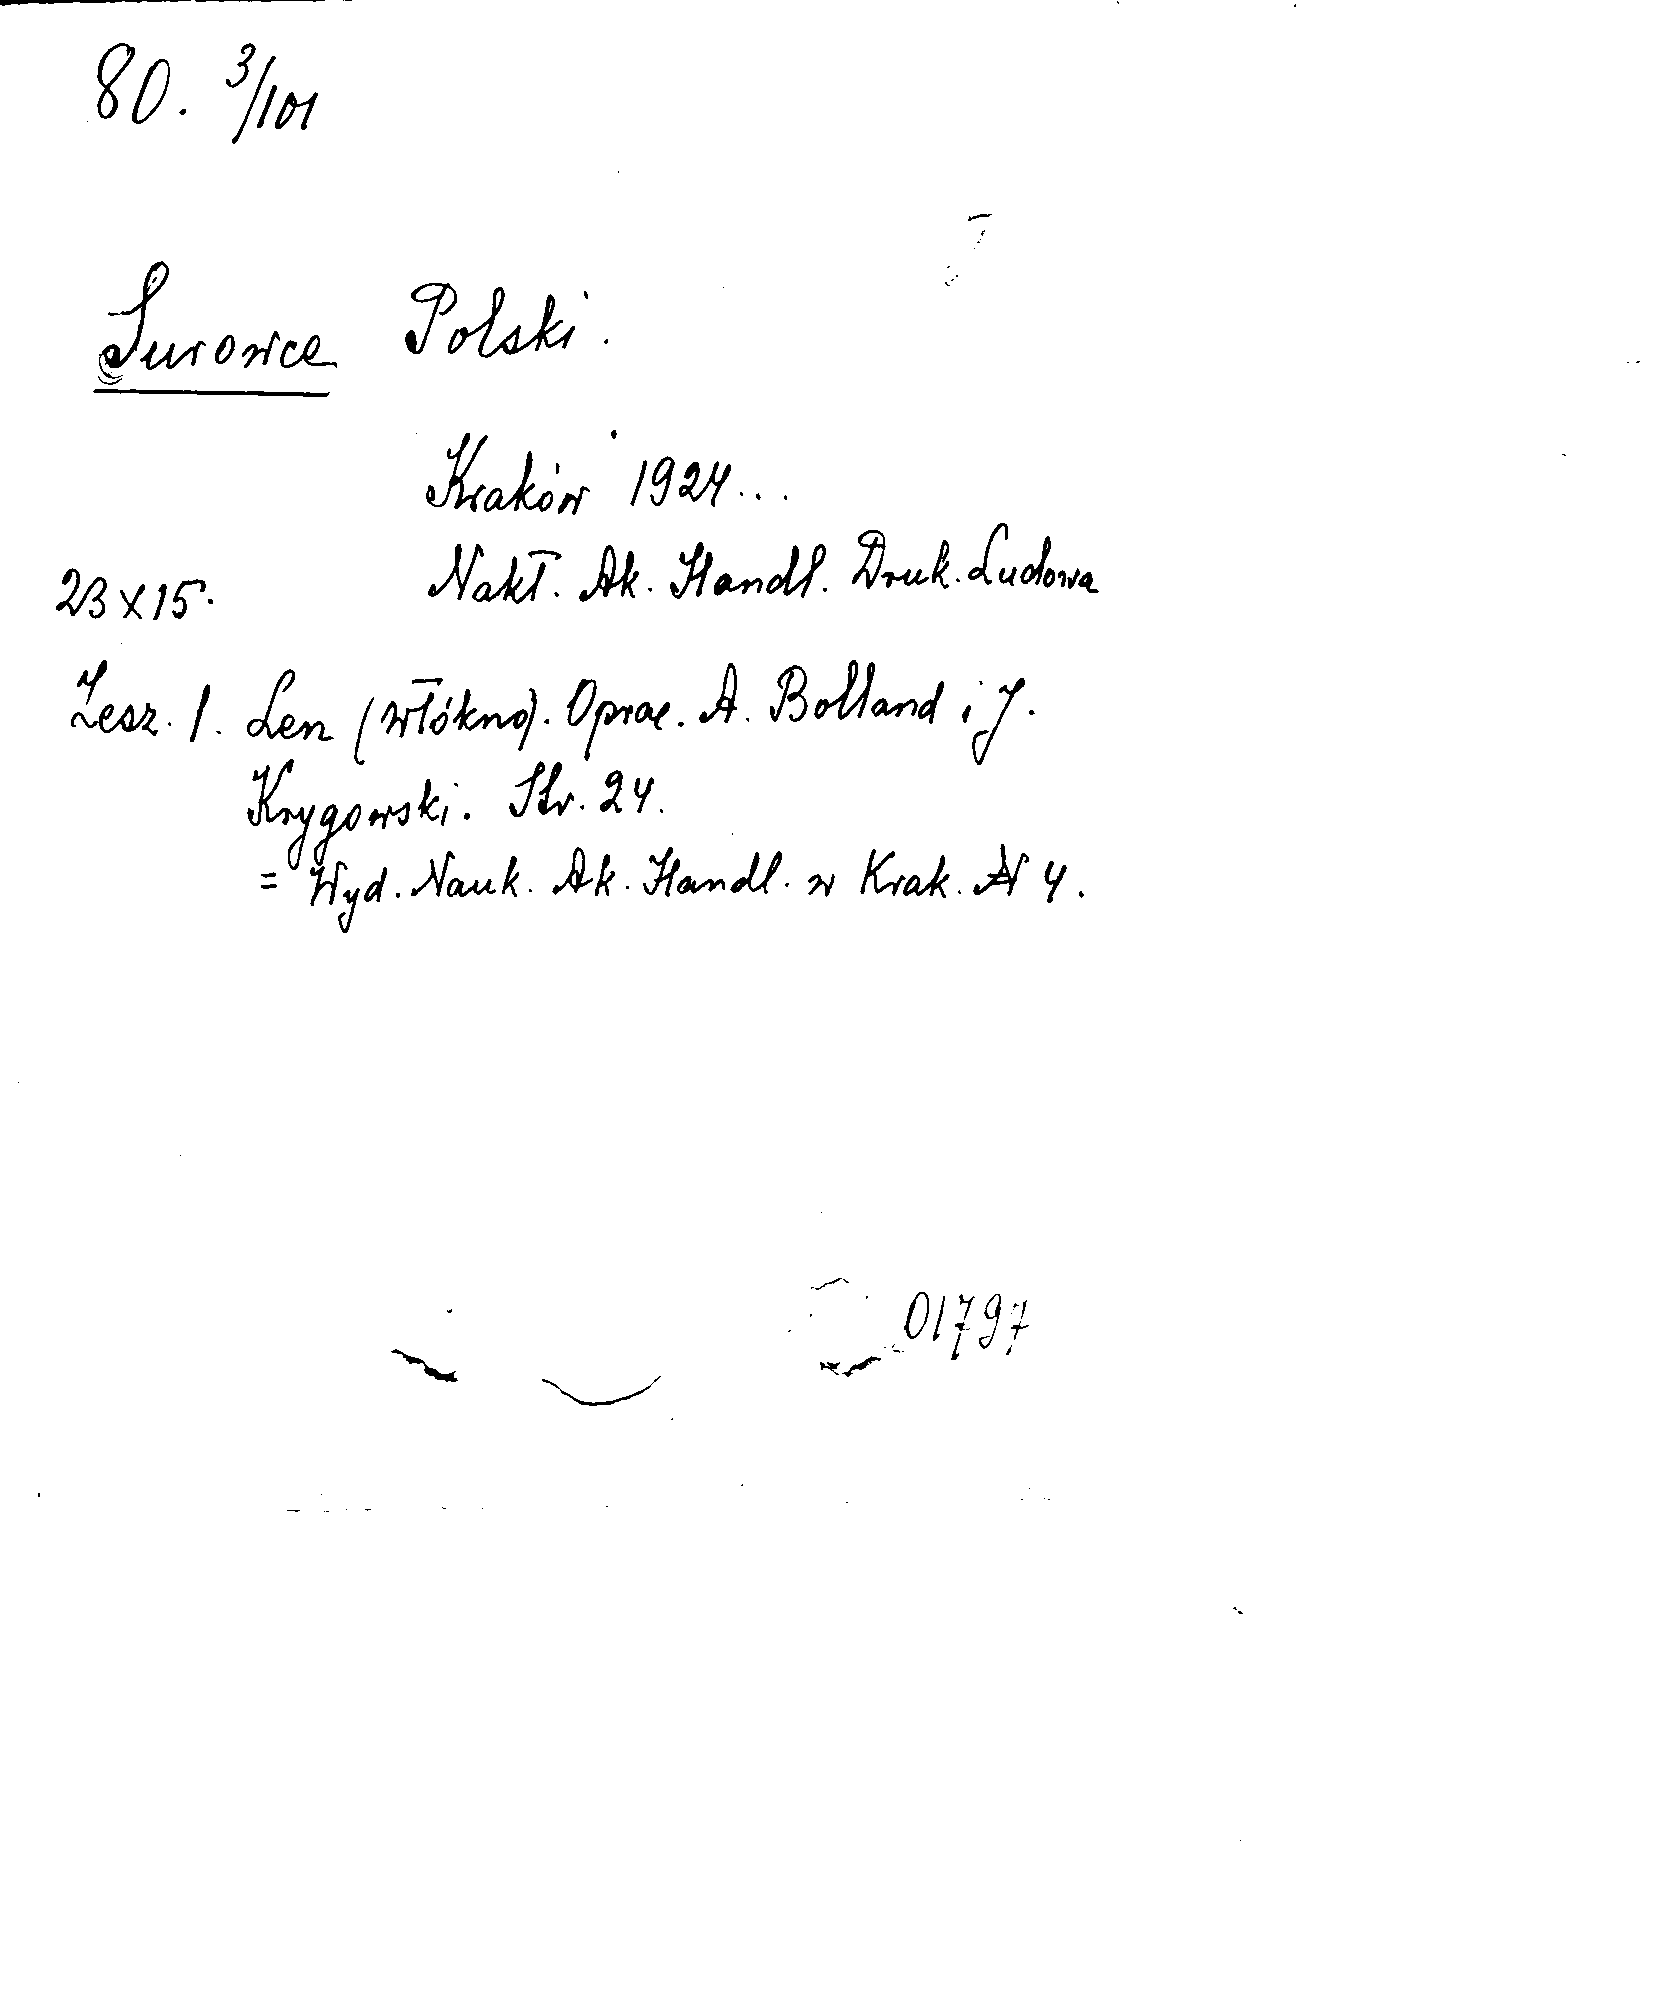 80. 3/101
Surowce Polski.
Kraków 1924...
Nakł. Ak. Handl. Druk. Ludowa
23x15.
Zesz. 1. Len (włókno). Oprac. A. Bolland i J.
Krygowski. Str. 24.
= Wyd. Nauk. Ak. Handl. w Krak. N 4.
01797